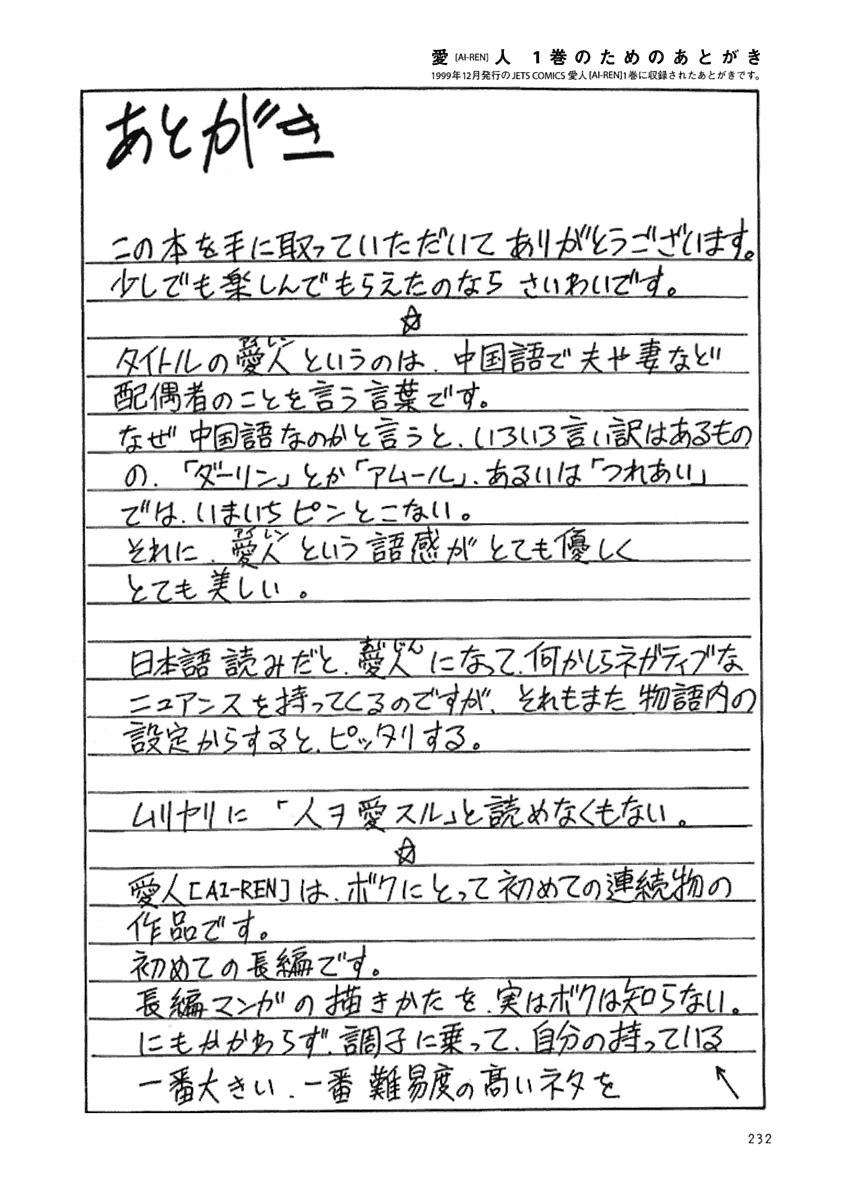 愛[AI-REN]人 1巻のためのあとがき
1999年12月発行のJETS COMICS 愛人[AI-REN]1巻に収録されたあとがきです。
あとがき
この本を手に取っていただいて ありがとうございます。
少しでも楽しんでもらえたのなら さいわいです。
☆
アイ レン
タイトルの愛人というのは、中国語で夫や妻など
配偶者のことを言う言葉です。
なぜ中国語なのかと言うと、いろいろ言い訳はあるもの
の、「ダーリン」とか「アムール」、あるいは「つれあい」
では、いまいちピンとこない。
アイ レン
それに、愛人という語感がとても優しく
とても美しい。
あい じん
日本語読みだと、愛人になって、何かしらネガティブな
ニュアンスを持ってくるのですが、それもまた物語内の
設定からすると、ピッタリする。
ムリヤリに「人ヲ愛スル」と読めなくもない。
☆
愛人[AI-REN]は、ボクにとって初めての連続物の
作品です。
初めての長編です。
長編マンガの描きかたを、実はボクは知らない。
にもかかわらず、調子に乗って、自分の持っている
一番大きい、一番難易度の高いネタを
232